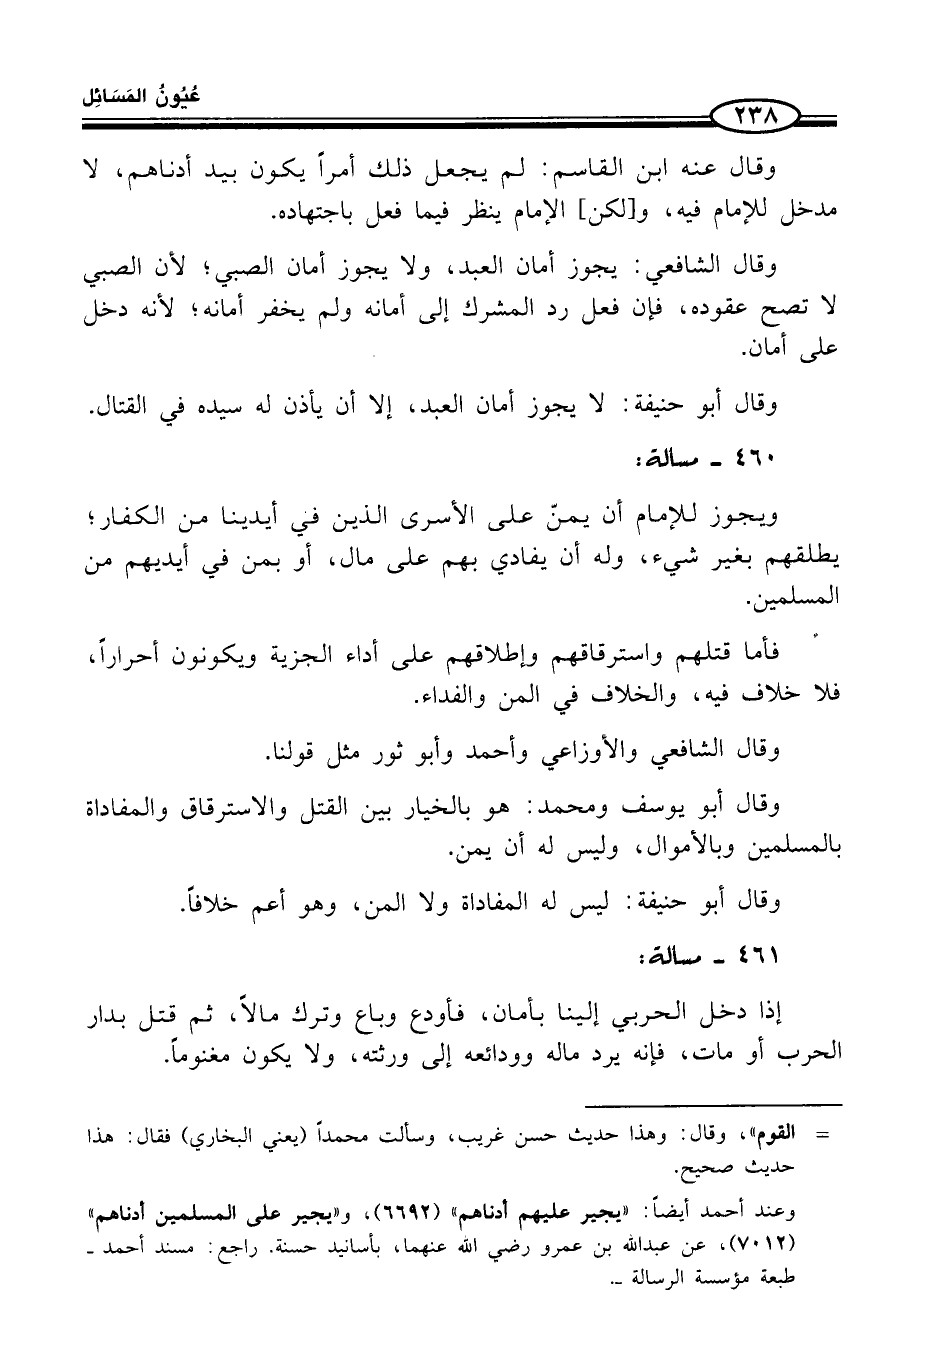 عُيُونُ المَسَائِل
٢٣٨
وقال عنه ابن القاسم: لم يجعل ذلك أمراً يكون بيد أدناهم، لا
مدخل للإمام فيه، و[لكن] الإمام ينظر فيما فعل باجتهاده.
وقال الشافعي: يجوز أمان العبد، ولا يجوز أمان الصبي؛ لأن الصبي
لا تصح عقوده، فإن فعل رد المشرك إلى أمانه ولم يخفر أمانه؛ لأنه دخل
على أمان.
وقال أبو حنيفة: لا يجوز أمان العبد، إلا أن يأذن له سيده في القتال.
٤٦٠ ـ مسالة:
ويجوز للإمام أن يمنّ على الأسرى الذين في أيدينا من الكفار؛
يطلقهم بغير شيء، وله أن يفادي بهم على مال، أو بمن في أيديهم من
المسلمين.
فأما قتلهم واسترقاقهم وإطلاقهم على أداء الجزية ويكونون أحراراً،
فلا خلاف فيه، والخلاف في المن والفداء.
وقال الشافعي والأوزاعي وأحمد وأبو ثور مثل قولنا.
وقال أبو يوسف ومحمد: هو بالخيار بين القتل والاسترقاق والمفاداة
بالمسلمين وبالأموال، وليس له أن يمن.
وقال أبو حنيفة: ليس له المفاداة ولا المن، وهو أعم خلافاً.
٤٦١ ـ مسالة:
إذا دخل الحربي إلينا بأمان، فأودع وباع وترك مالاً، ثم قتل بدار
الحرب أو مات، فإنه يرد ماله وودائعه إلى ورثته، ولا يكون مغنوماً.
= القوم»، وقال: وهذا حديث حسن غريب، وسألت محمداً (يعني البخاري) فقال: هذا
حديث صحيح.
وعند أحمد أيضاً: «يجير عليهم أدناهم» (٦٦٩٢)، و«يجير على المسلمين أدناهم»
(٧٠١٢)، عن عبدالله بن عمرو رضي الله عنهما، بأسانيد حسنة. راجع: مسند أحمد ـ
طبعة مؤسسة الرسالة ـ.